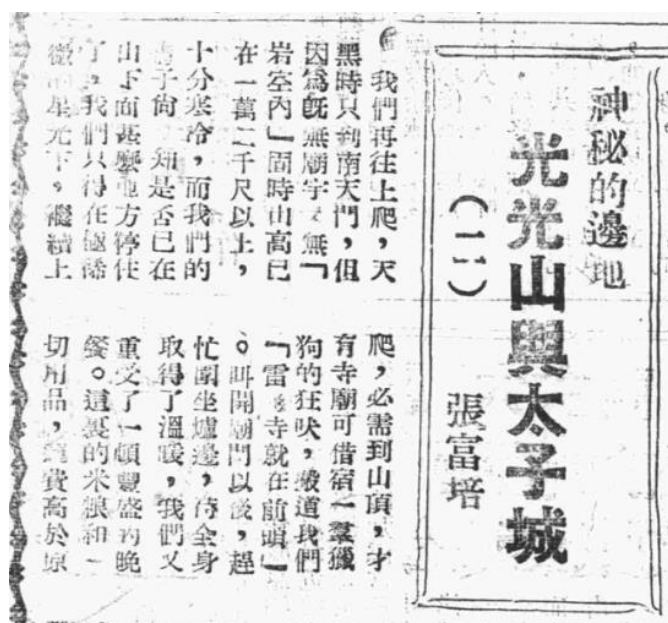 神秘的邊地
光光山與太子城
（二）
張富培
我們再往上爬，天
黑時只到南天門，但
因為既無廟宇又無「
岩空內」同時山高已
在一萬二千尺以上，
十分寒冷，而我們的
子尚 知是否已在
山下面甚麼地方停住
了，我們只得在極稀
微的星光下，繼續上
爬，必需到山頂，才
有寺廟可借宿一羣獵
狗的狂吠，報道我們
「雷 寺就在前頭」
。叫開廟門以後，趕
忙圍坐爐邊，待全身
取得了溫暖，我們又
重受了一頓豐盛的晚
餐。這裏的米糧和一
切用品，運費高於原